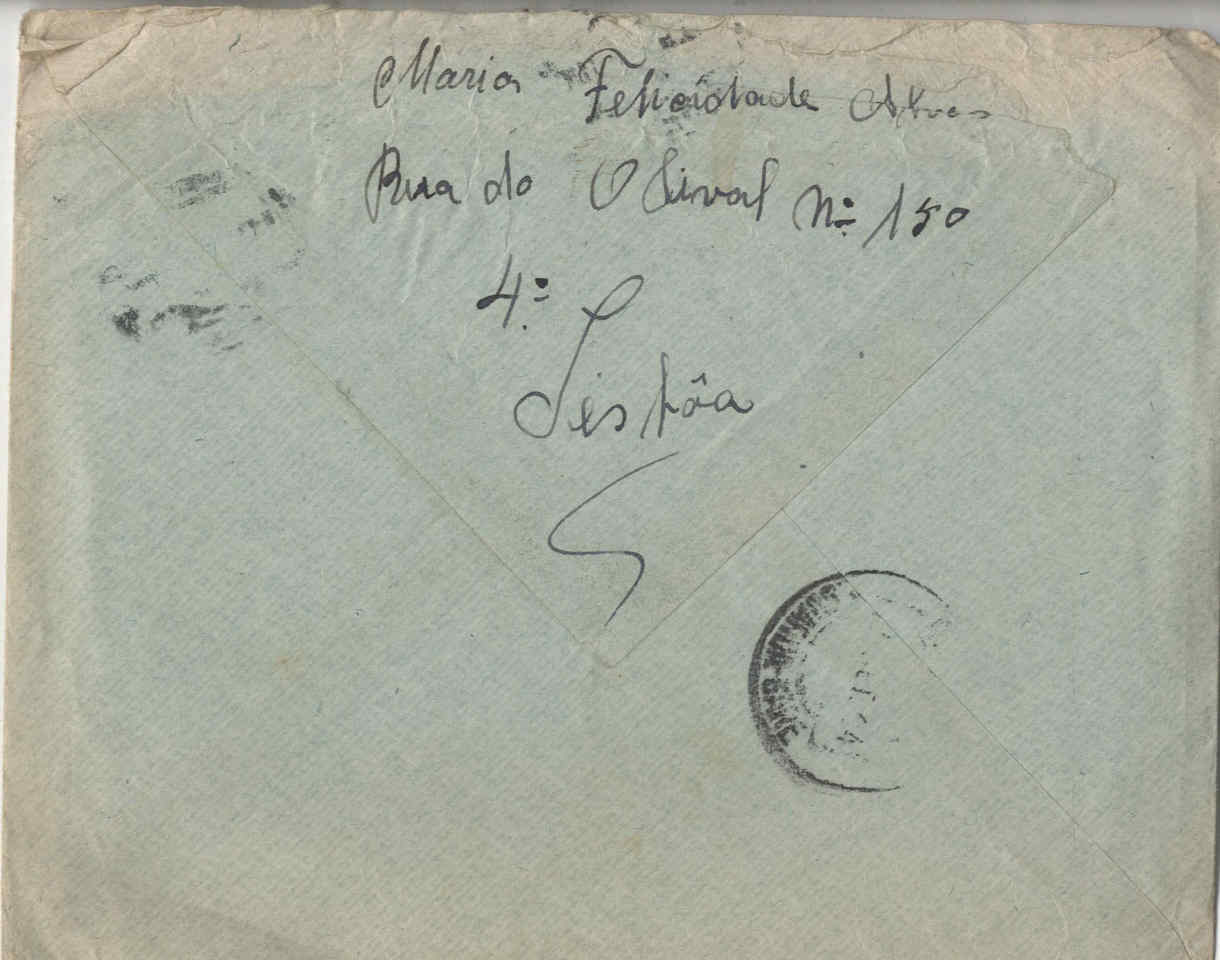 Maria Felicidade Alves
Rua do Olival Nº 150
4º
Lisbôa